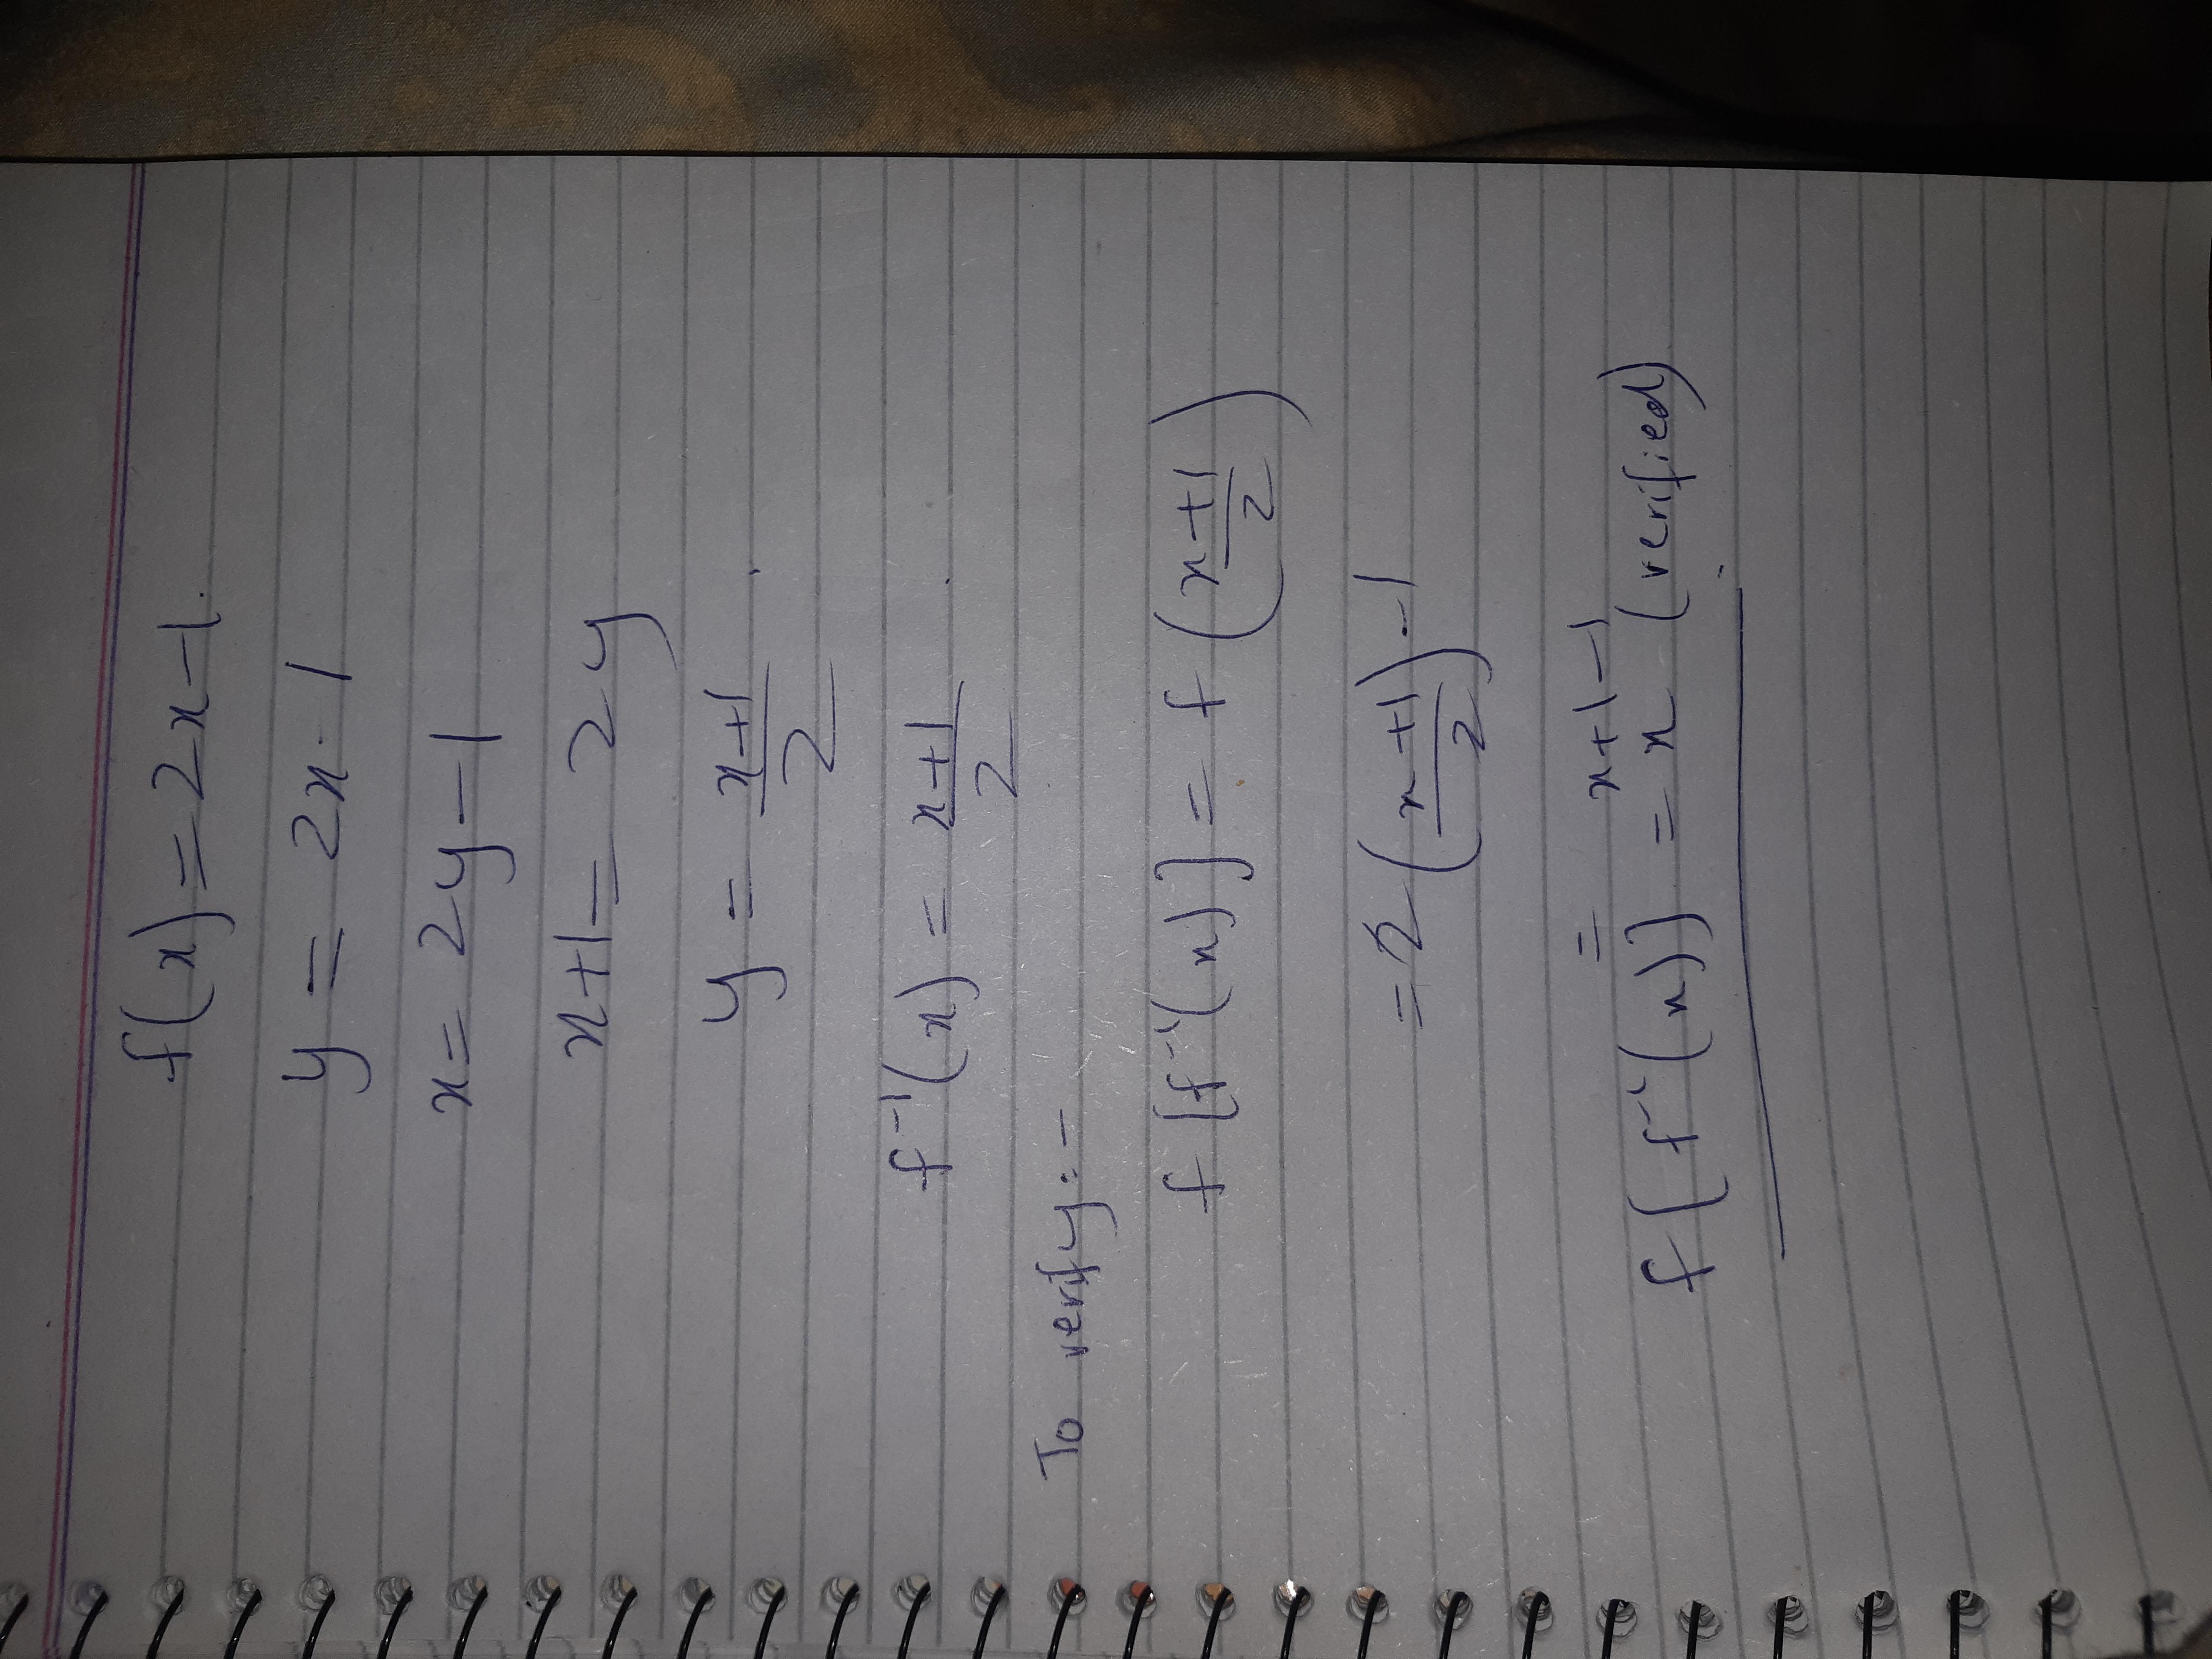 f(x) = 2x-1.
y = 2x-1
x = 2y-1
x+1 = 2y
y = x+1/2
f⁻¹(x) = x+1/2
To verify:-
f[f⁻¹(x)] = f(x+1/2)
= 2(x+1/2)-1
= x+1-1
f[f⁻¹(x)] = x (verified)